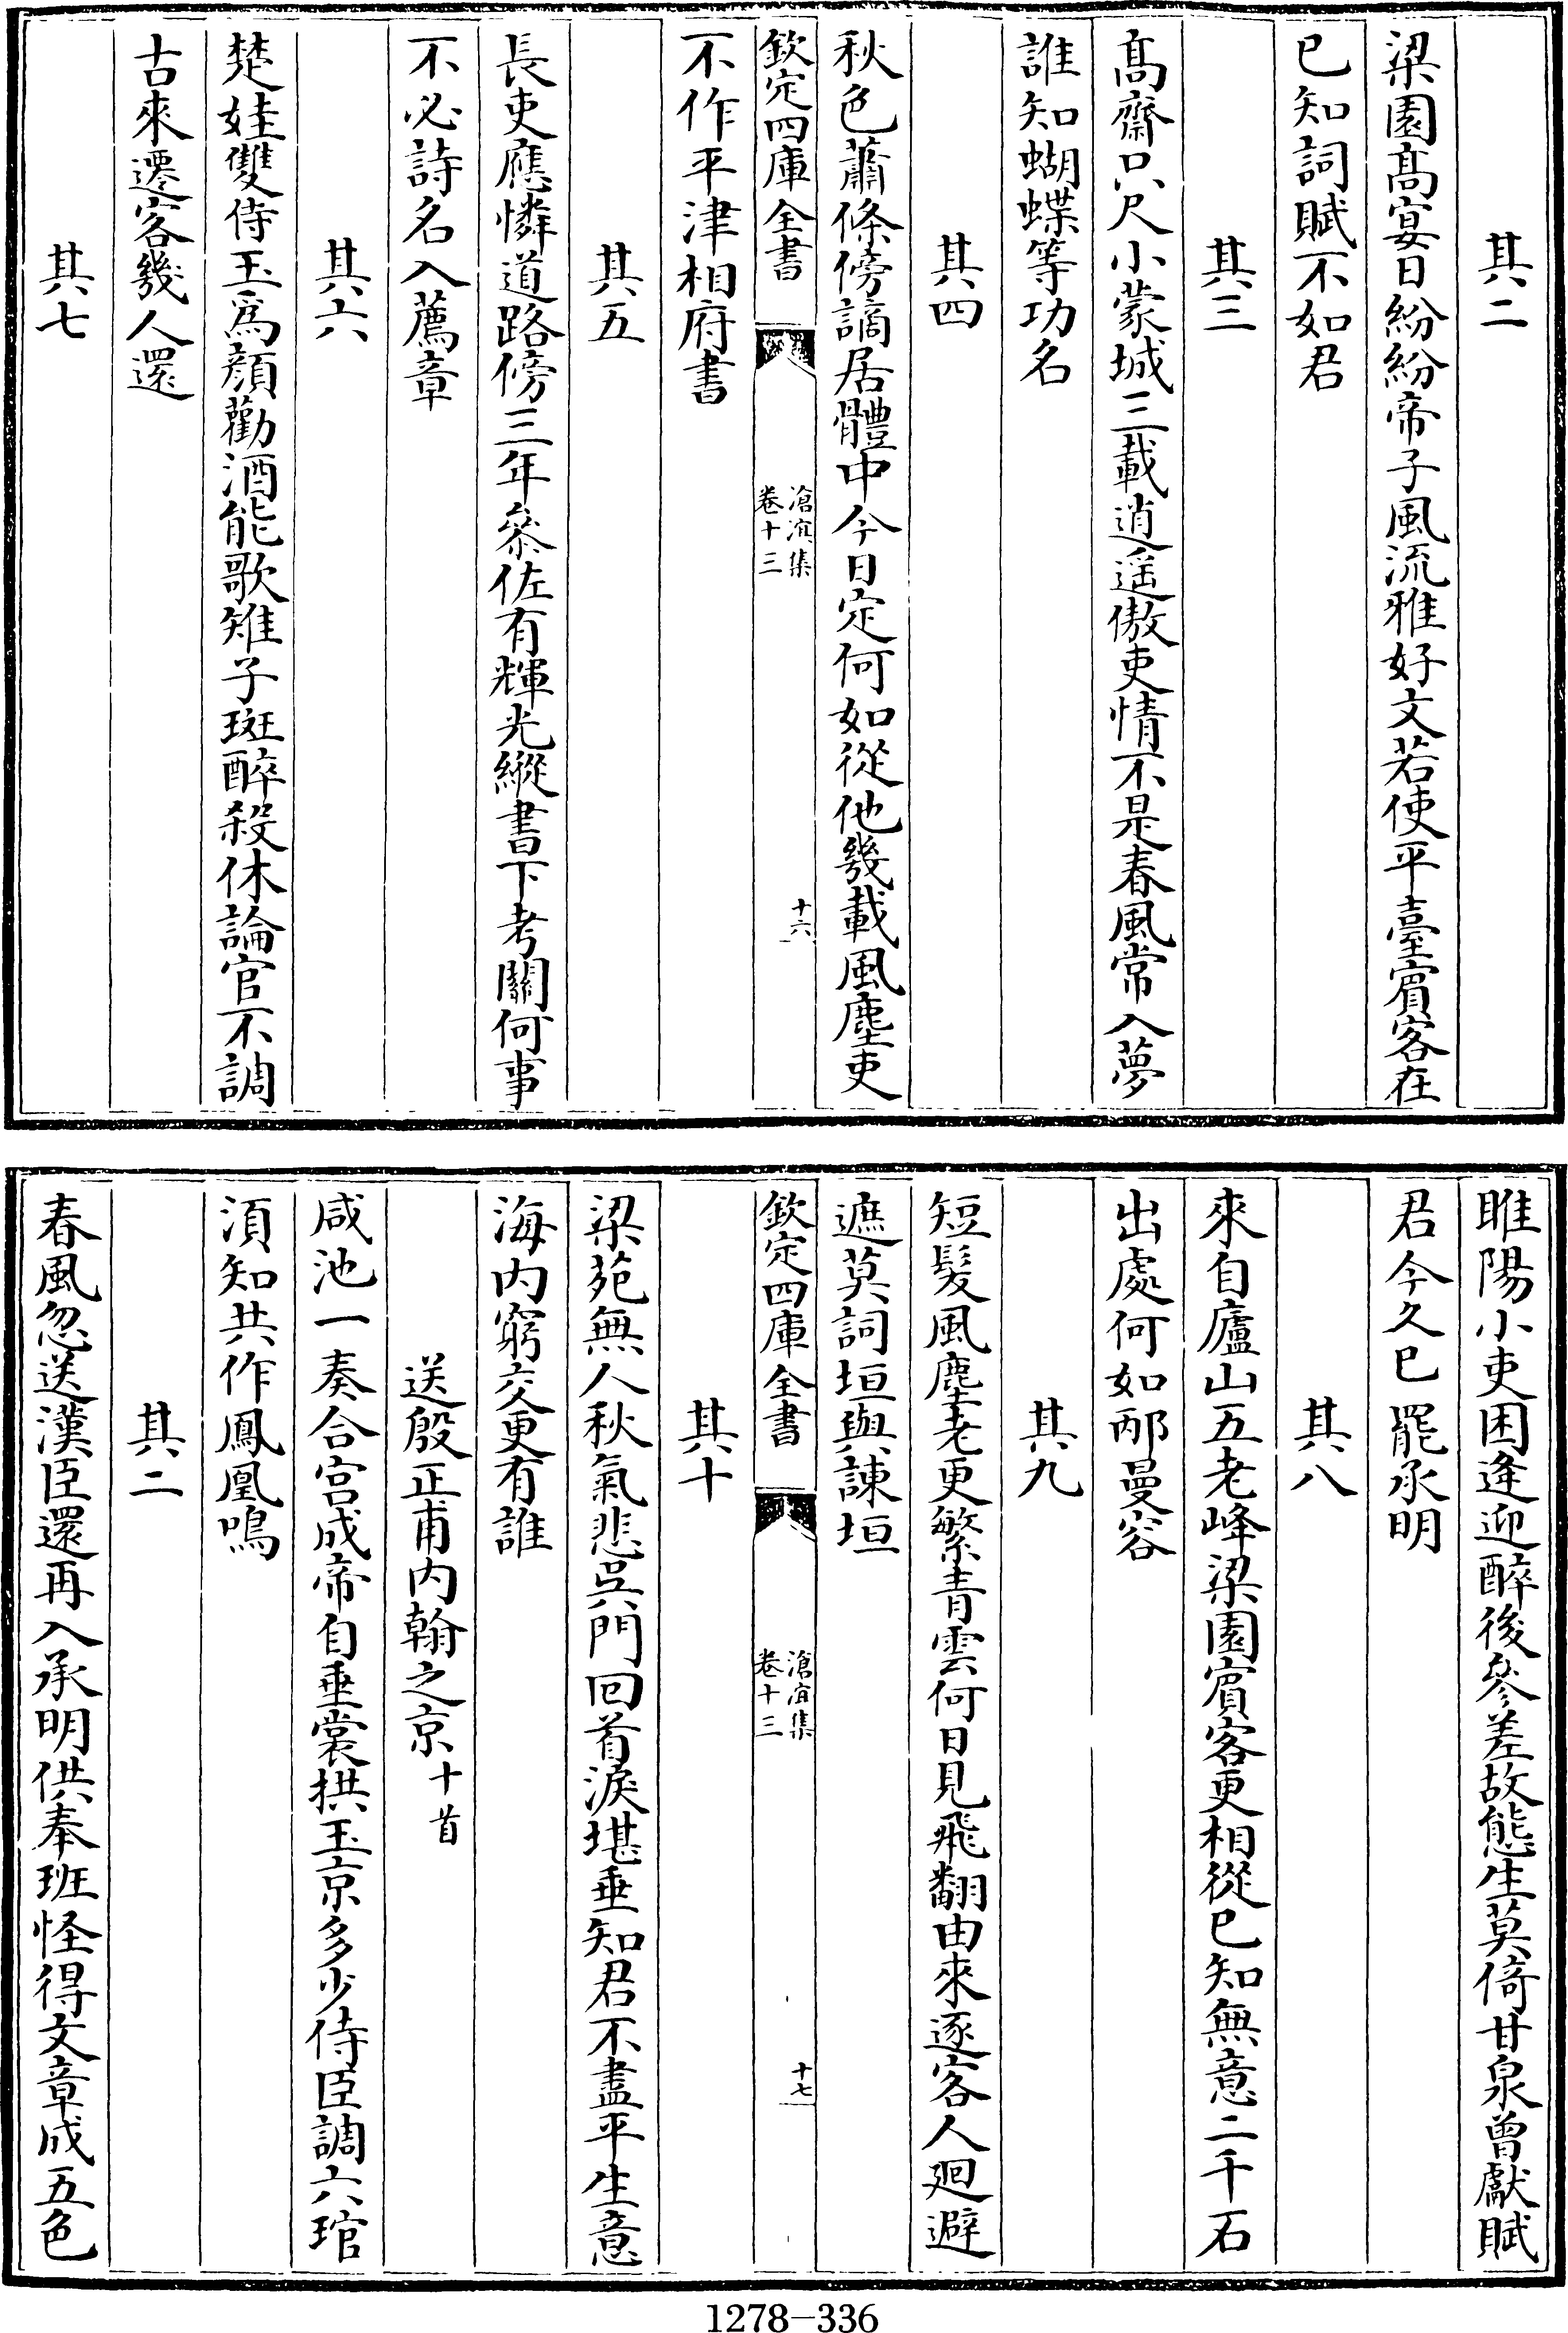 其二
梁園髙宴日紛紛帝子風流雅好文若使平臺賔客在
已知詞賦不如君
其三
髙齋只尺小蒙城三載逍遥傲吏情不是春風常入夢
誰知蝴蝶等功名
其四
秋色蕭條傍謫居體中今日定何如從他幾載風塵吏
欽定四庫全書
滄溟集
卷十三
十六
不作平津相府書
其五
長吏應憐道路傍三年叅佐有輝光縱書下考關何事
不必詩名入薦章
其六
楚娃雙侍玉為顔勸酒能歌雉子斑醉殺休論官不調
古來遷客幾人還
其七
睢陽小吏困逢迎醉後參差故態生莫倚甘泉曽獻賦
君今久已罷承明
其八
來自廬山五老峰梁園賔客更相從已知無意二千石
出處何如邴曼容
其九
短髮風塵老更繁青雲何日見飛翻由來逐客人廻避
遮莫詞垣與諫垣
欽定四庫全書
滄溟集
卷十三
十七
其十
梁苑無人秋氣悲吳門回首淚堪垂知君不盡平生意
海内窮交更有誰
送殷正甫内翰之京十首
咸池一奏合宫成帝自垂裳拱玉京多少侍臣調六琯
須知共作鳳凰鳴
其二
春風忽送漢臣還再入承明供奉班怪得文章成五色
1278-336